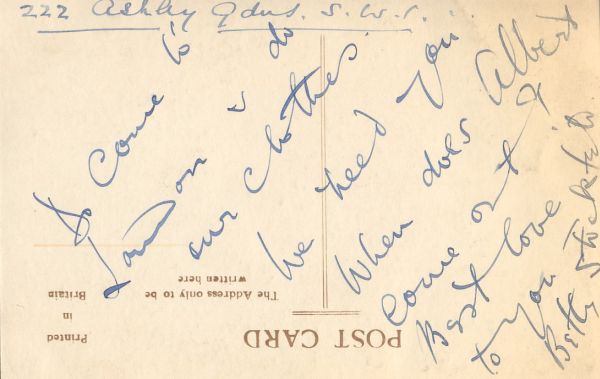 222 Ashley Gdns. S.W.1.
to come to
London & do
our clothes.
We need you
When does Albert
come out?
Best love
to you
Betty Stockfeld.
POST CARD
The Address only to be
written here
Printed
in
Britain